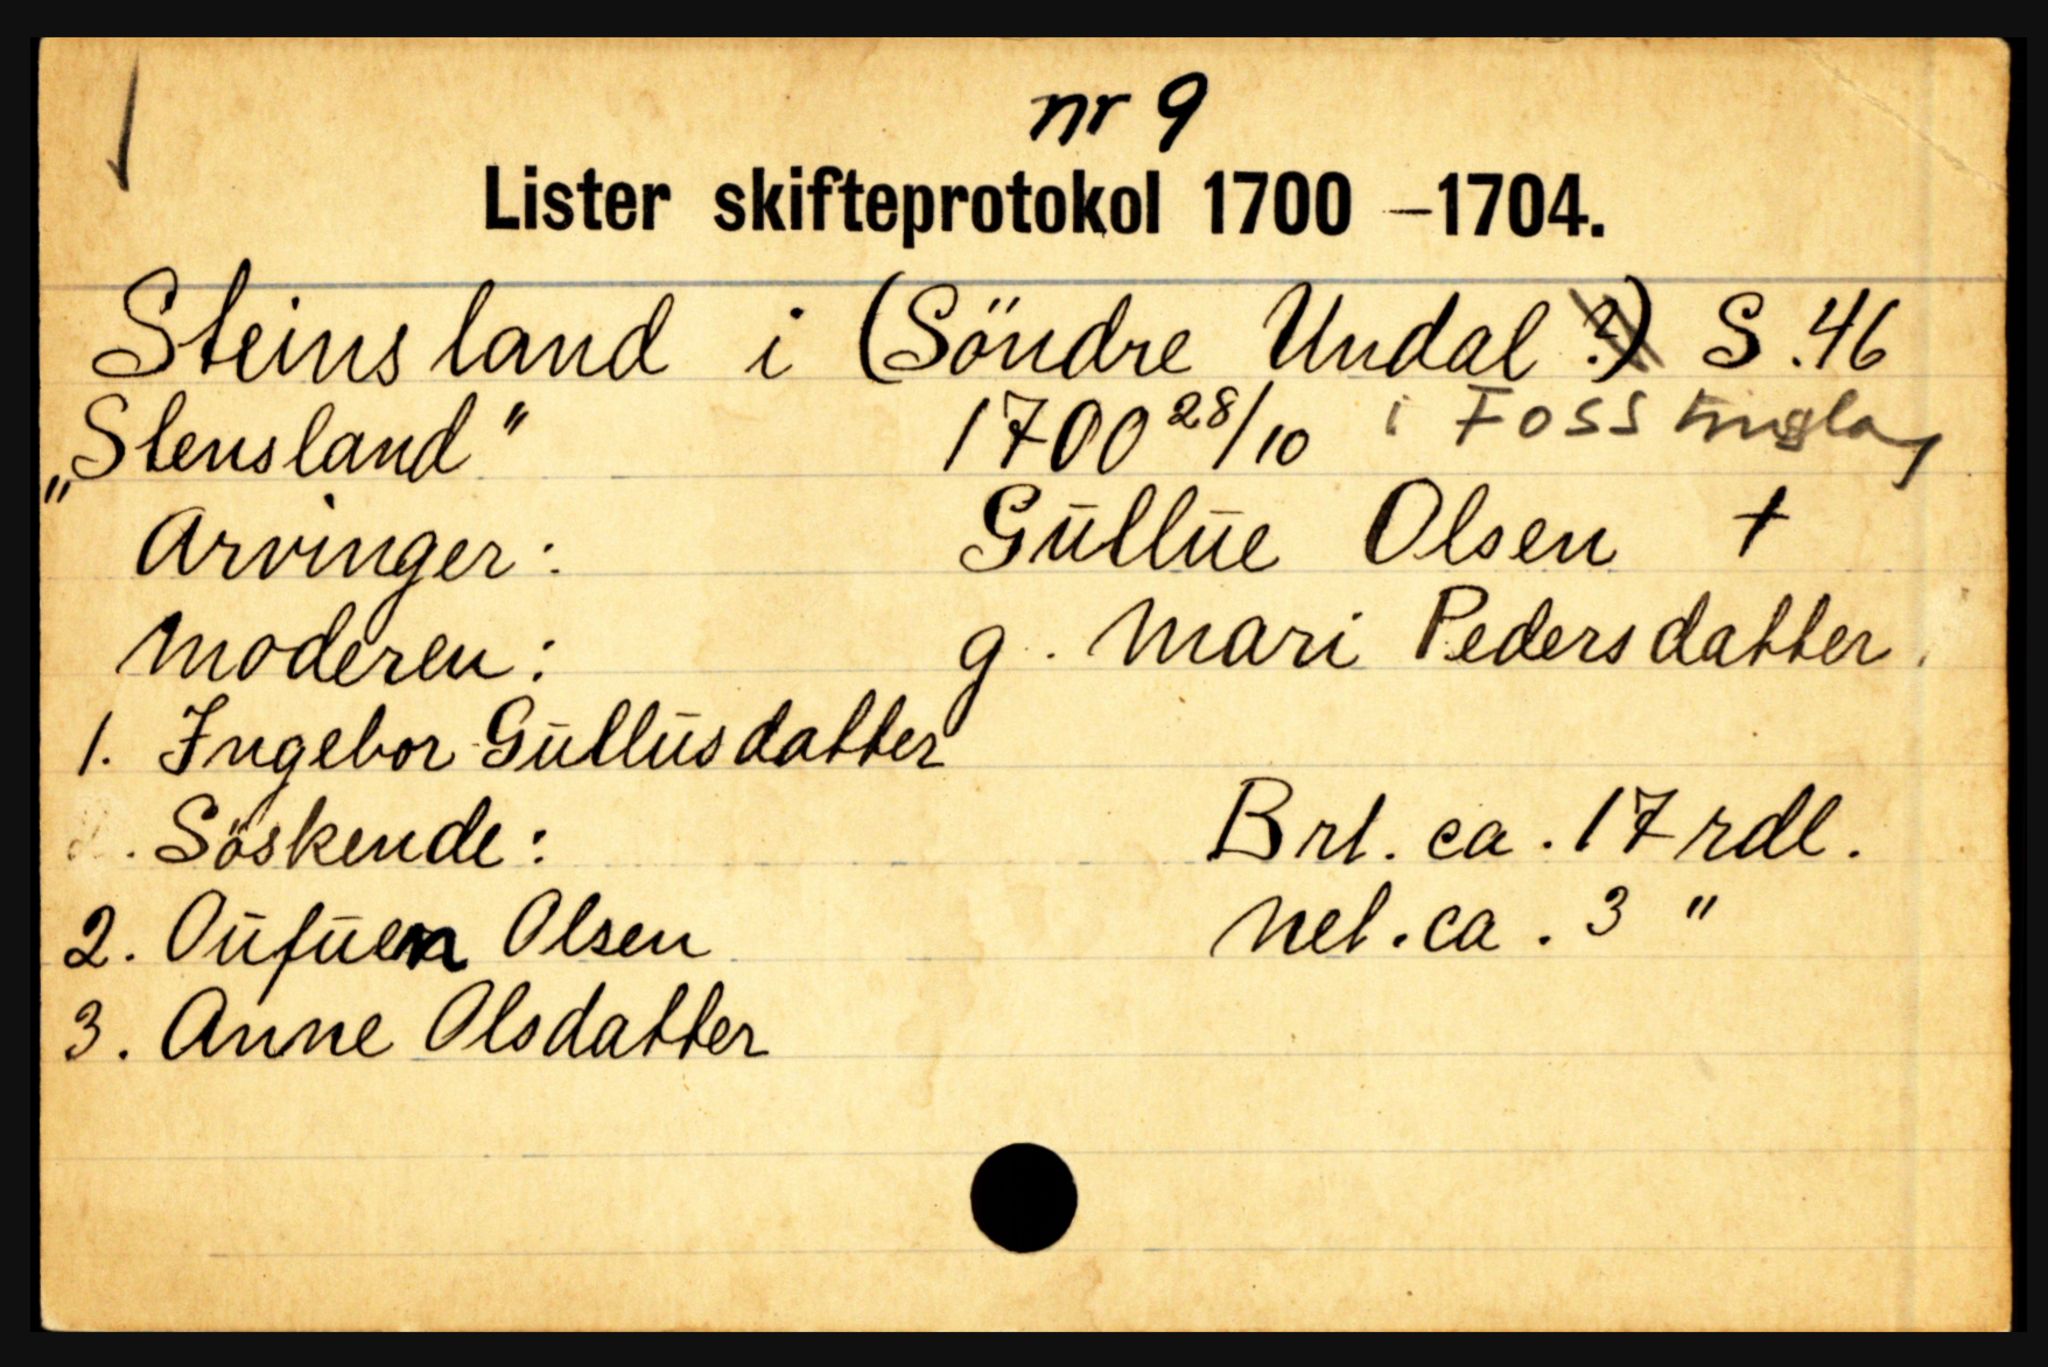 nr 9
Lister skifteprotokol 1700 –1704.
Steinsland i (Söndre Undal ?) S. 46
„Stensland" 1700 28/10 i Foss tinglag
Arvinger: Gūllūe Olsen †
Moderen: g. Mari Pedersdatter.
1. Ingebor Gūllūsdatter
Söskende: Brt. ca. 17 rdl.
2. Oūfūen Olsen Net. ca. 3 "
3. Anne Olsdatter